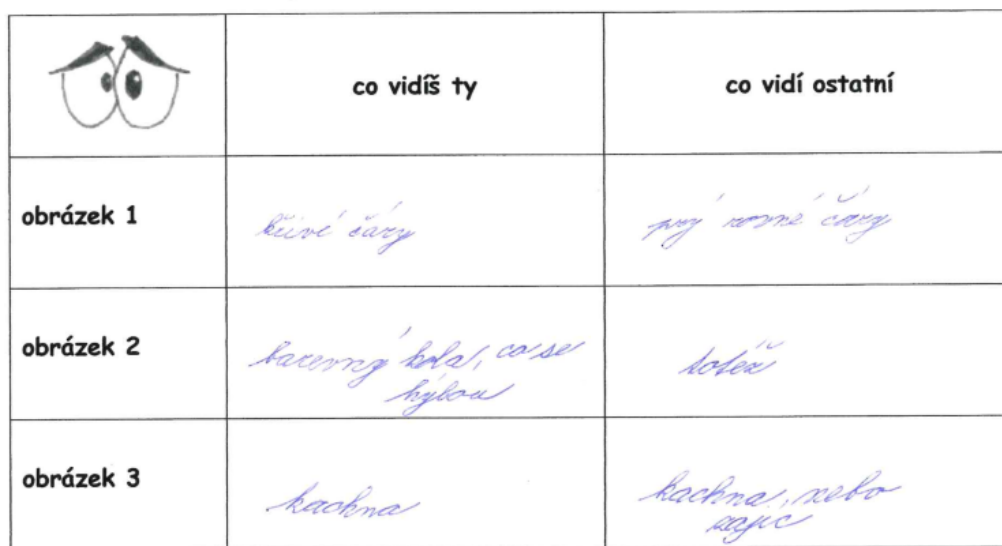 co vidíš ty
co vidí ostatní
obrázek 1
křivé čáry
prý rovné čáry
obrázek 2
barevný kola, co se
hýbou
totéž
obrázek 3
kachna
kachna, nebo
zajíc